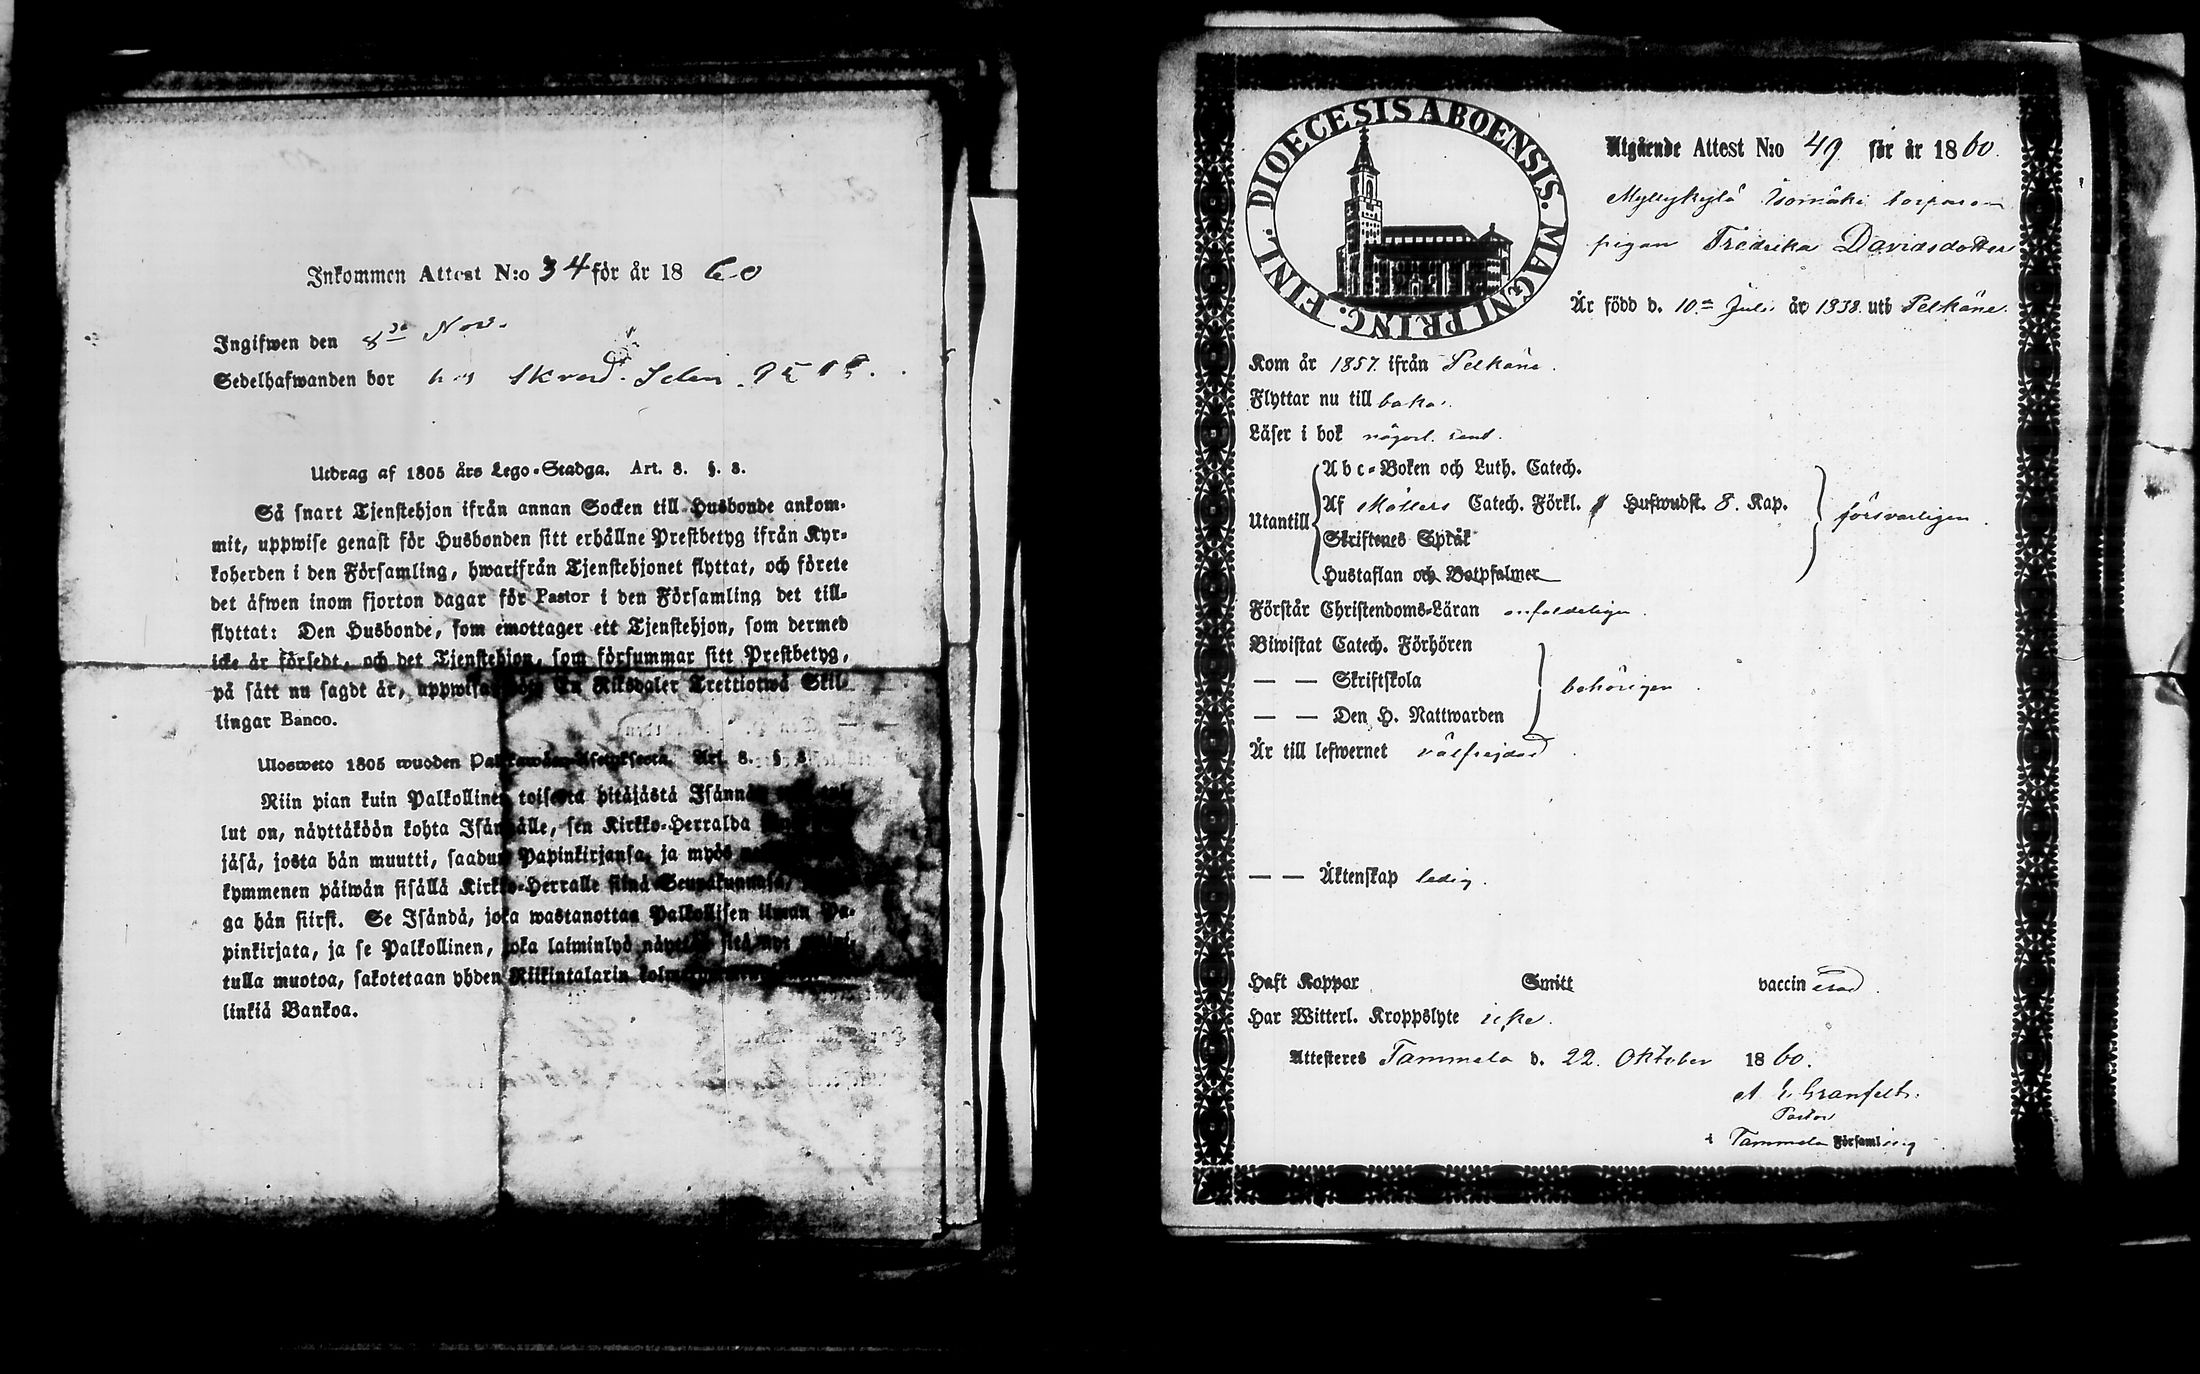 Inkommen Attest N:o 34 för år 1860
Ingifwen den 8de Nov.
Sedelhafwanden bor hos Skrædd. Selin
Utdrag af 1805 års Lego-Stadga. Art. 8. §. 8.
Så snart Tjenstehjon ifrån annan Socken till Husbonde ankom-
mit, uppwise genast för Husbonden sitt erhållne Prestbetyg ifrån Kyr-
koherden i den Församling, hwarifrån Tjenstehjonet flyttat, och förete
det äfwen inom fjorton dagar för Pastor i den Församling det till-
flyttat: Den Husbonde, som emottager ett Tjenstehjon, som dermed
icke är försedt, och det Tjenstehjon, som försummar sitt Prestbetyg,
på sätt nu sagdt är, uppwisa En Riksdaler Trettiotwå Skil-
lingar Banco.
Ulosweto 1805 wuoden Palkawäen-Asetuksesta. Art. 8. §. 8.
Niin pian kuin Palkollinen toisesta pitäjästä Isännän
lut on, näyttäköön kohta Isännälle, sen Kirkko-Herralda
jäsä, josta hän muutti, saadun Papinkirjansa, ja myös
kymmenen päiwän sisällä Kirkko-Herralle siinä Seurakunnasa,
ga hän siirsi. Se Isändä, joka wastanottaa Palkollisen ilman Pa-
pinkirjata, ja se Palkollinen, joka laiminlyö näyttää sitä nyt
tulla muotoa, sakotetaan yhden Riikintalarin
linkiä Bankoa.
DIOECESIS ABOENSIS. MAGNI PRINC. FINL.
Utgående Attest N:o 49 för år 1860.
Myllykylä Isomäki torpare
pigan Fredrika Davidsdotter
Är född d. 10de Juli år 1838 uti Pelkäne.
Kom år 1857 ifrån Pelkäne.
Flyttar nu till baka.
Läser i bok någorl. rent.
Abc-Boken och Luth. Catech.
Af Möllers Catech. Förkl. Hufwudst. 8. Kap.
Utantill försvarligen.
Skriftenes Språk
Hustaflan och Botpsalmer
Förstår Christendoms-Läran enfaldeligen.
Biwistat Catech. Förhören
— — Skriftskola behörigen.
— — Den H. Nattwarden
Är till lefwernet välfrejdad
— — Äktenskap ledig.
Haft Koppor Smitt vaccinerad.
Har Witterl. Kroppslyte icke.
Attesteres Tammela d. 22. Oktober 1860.
A. E. Granfelt.
Pastor
i Tammela Församling